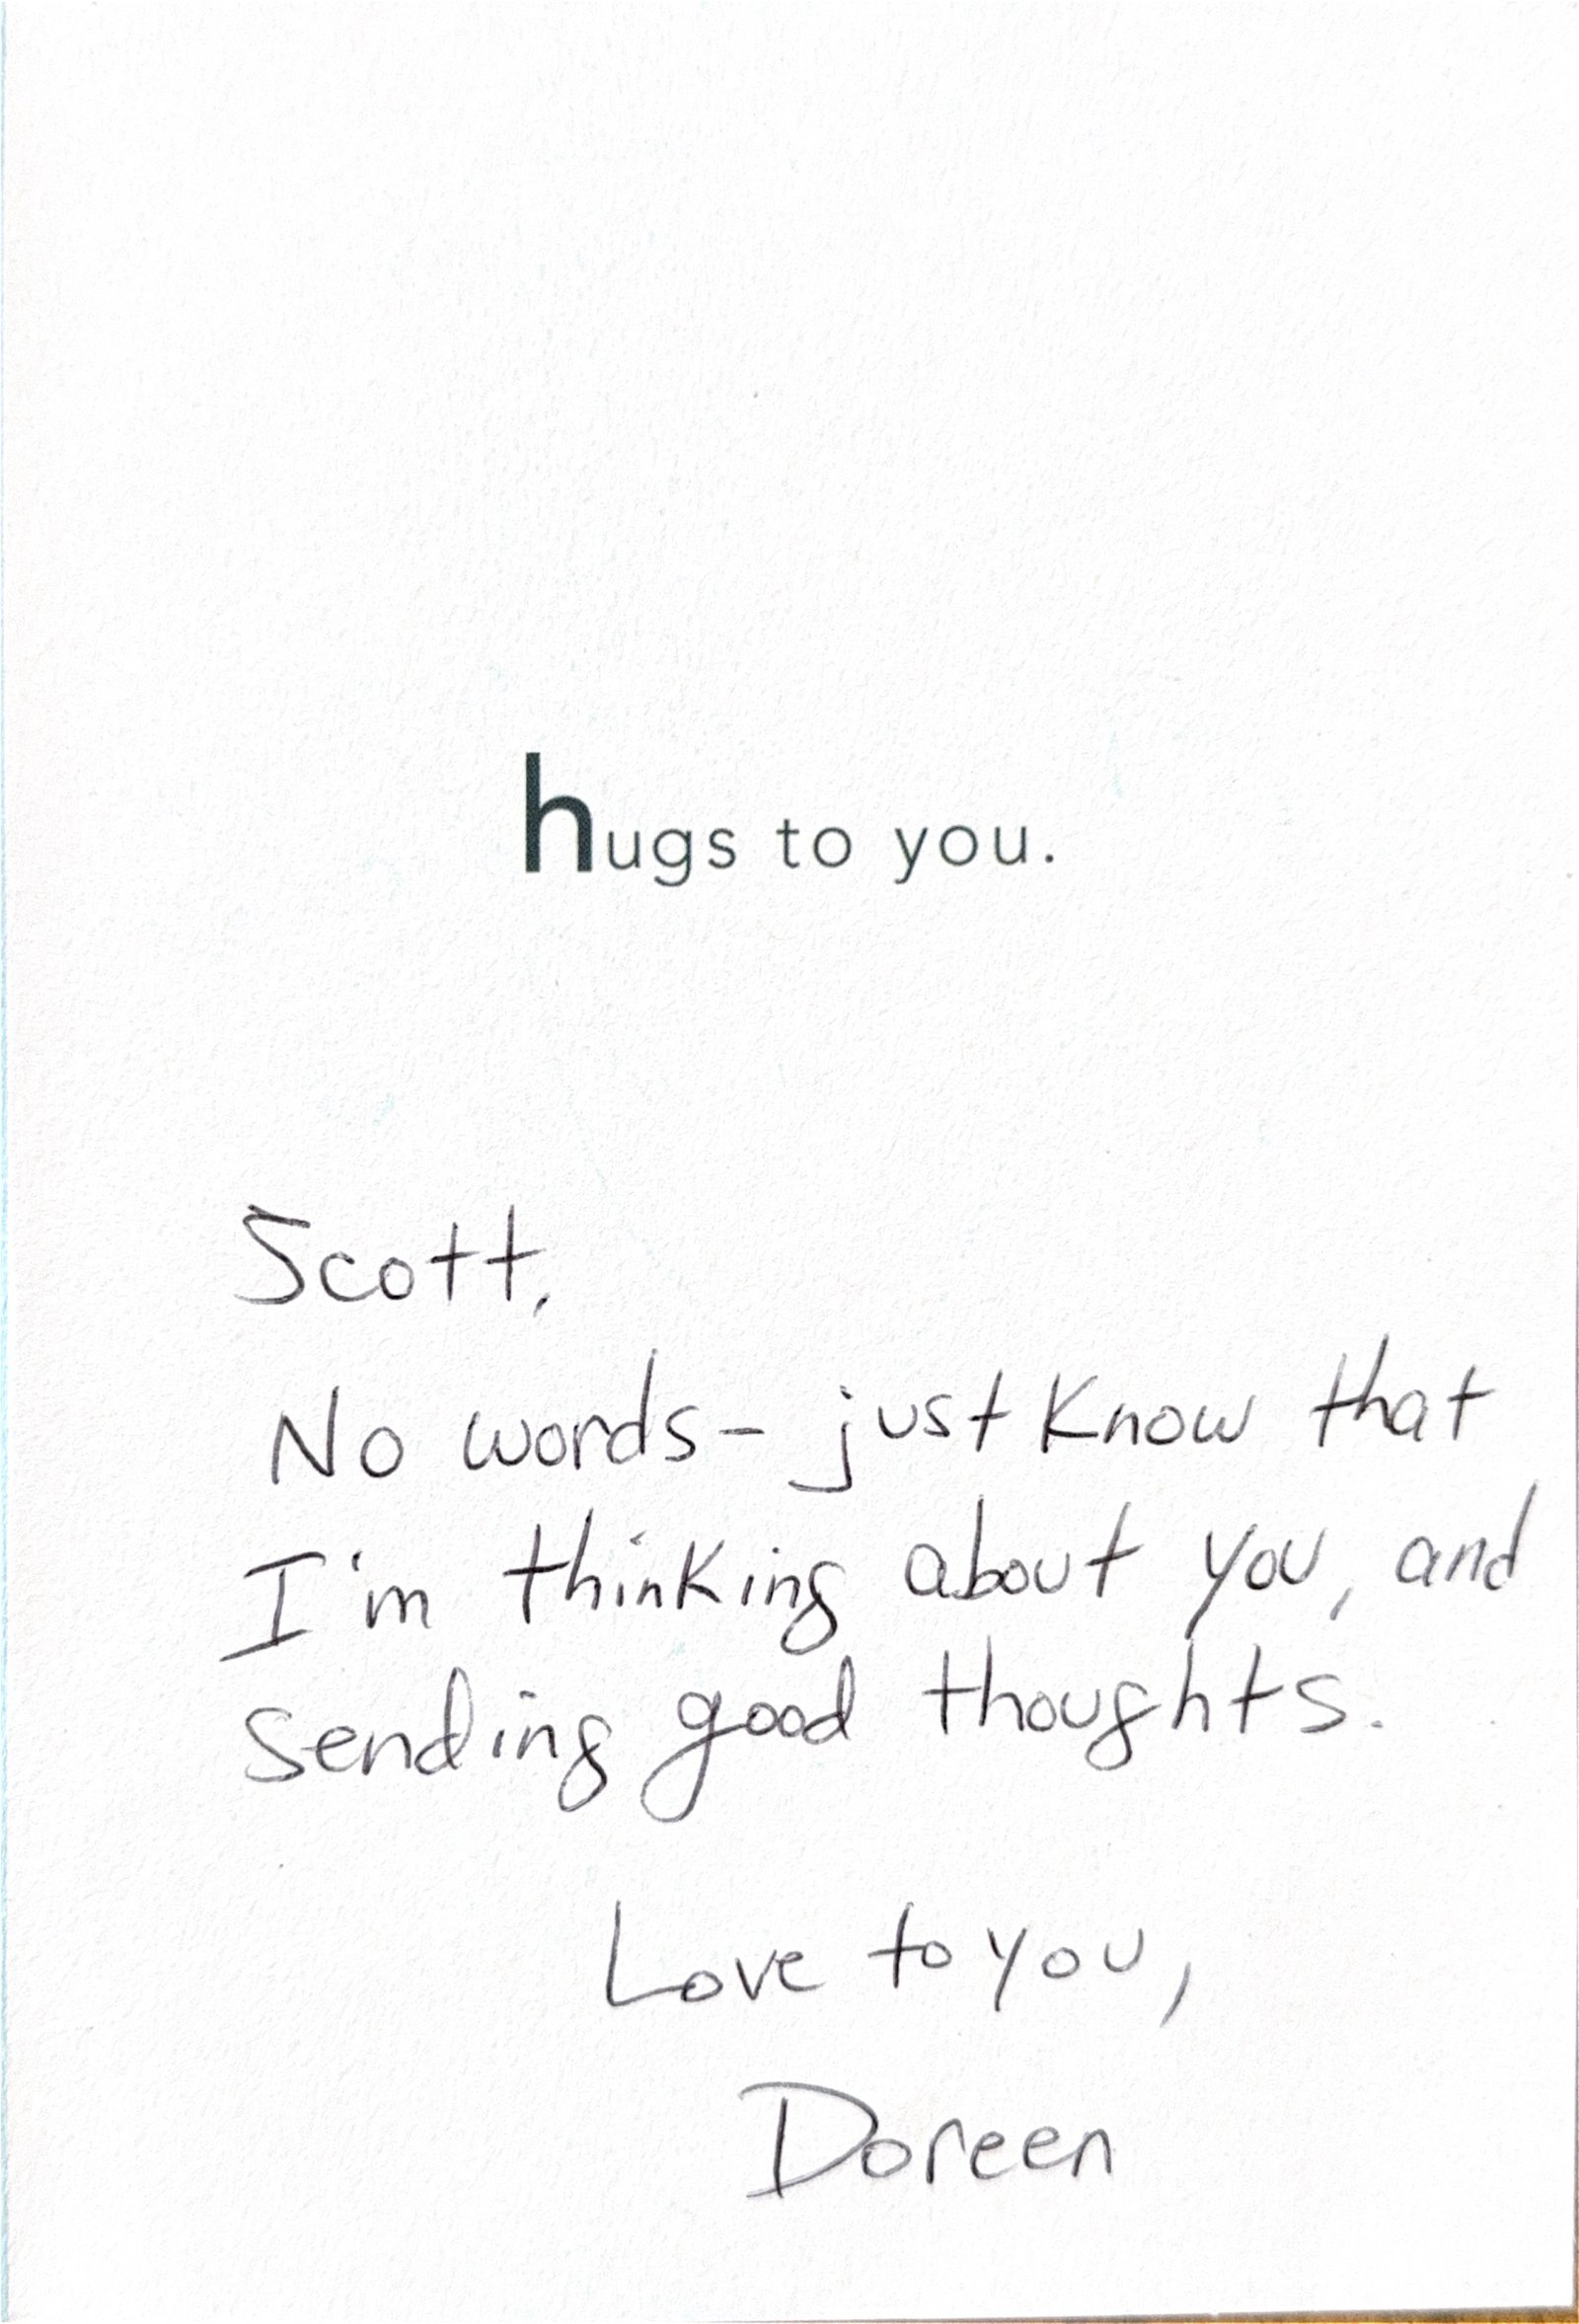 hugs to you.
Scott,
No words- just know that
I'm thinking about you, and
sending good thoughts.
Love to you,
Doreen